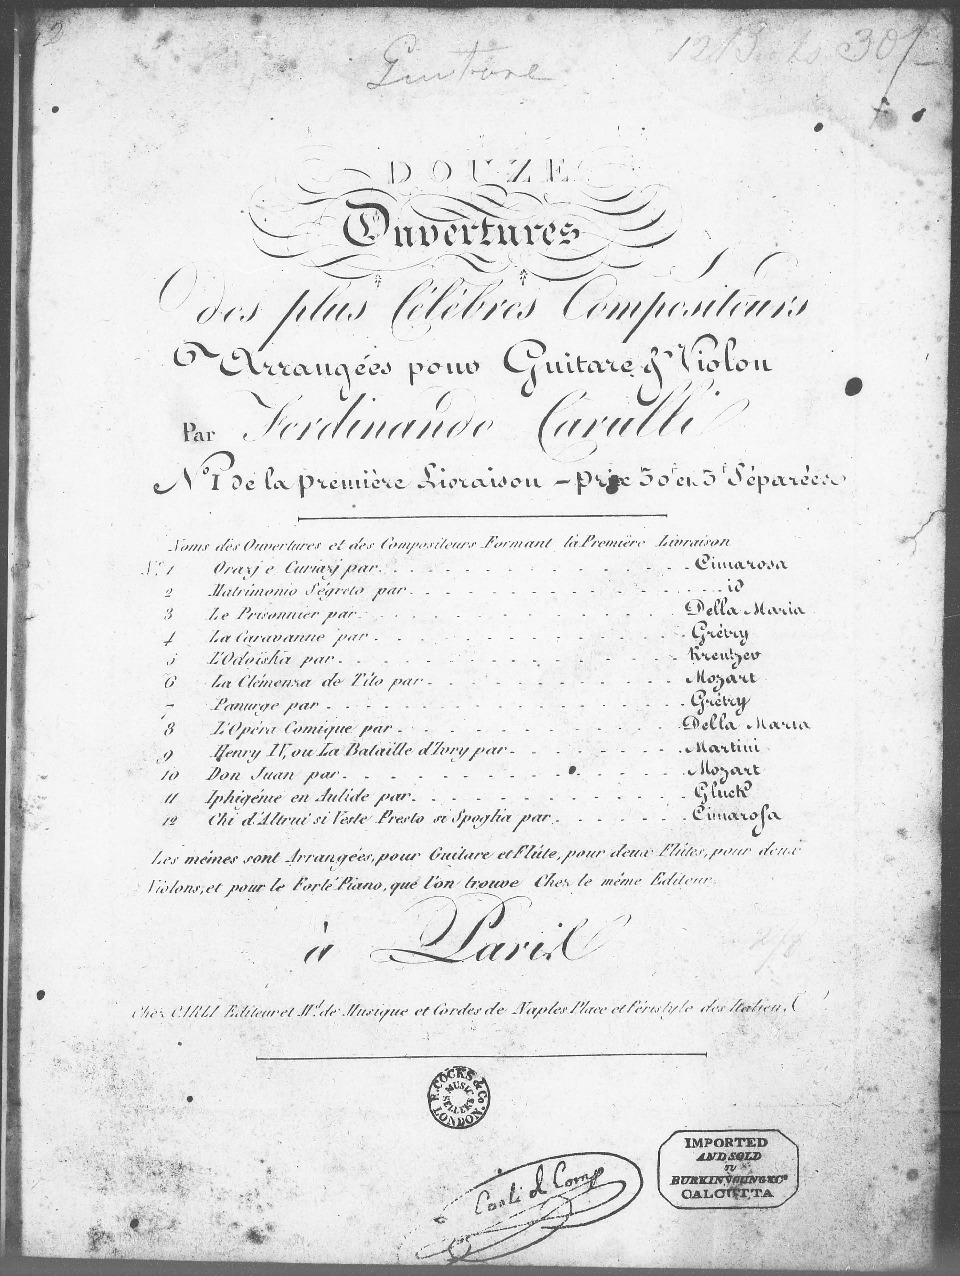 2
Guitare
DOUZE
Ouvertures
des plus Célèbres Compositeurs
Arrangées pour Guitare & Violon
Par Ferdinando Carulli
N° 1 de la première Livraison – prix 30f en 3f Séparées
Noms des Ouvertures et des Compositeurs Formant la Première Livraison
N° 1 Orazj e Curiazj par Cimarosa
2 Matrimonio Ségreto par id
3 Le Prisonnier par Della Maria
4 La Caravanne par Grétry
5 L'Odoïska par Kreutzer
6 La Clémenza de Tito par Mozart
7 Panurge par Grétry
8 L'Opéra Comique par Della Maria
9 Henry IV, ou La Bataille d'Ivry par Martini
10 Don Juan par Mozart
11 Iphigénie en Aulide par Gluck
12 Chi d'Altrui si Veste Presto si Spoglia par Cimarosa
Les mêmes sont Arrangées, pour Guitare et Flûte, pour deux Flûtes, pour deux
Violons, et pour le Forté Piano, que l'on trouve Chez le même Editeur.
à Paris
Chez CARLI Editeur et Md. de Musique et Cordes de Naples Place et Péristyle des Italiens
R. COCKS & Co. LONDON.
MUSIC SELLERS
Carli et Comp
IMPORTED
AND SOLD
BY
BURKINYOUNG & Co
CALCUTTA